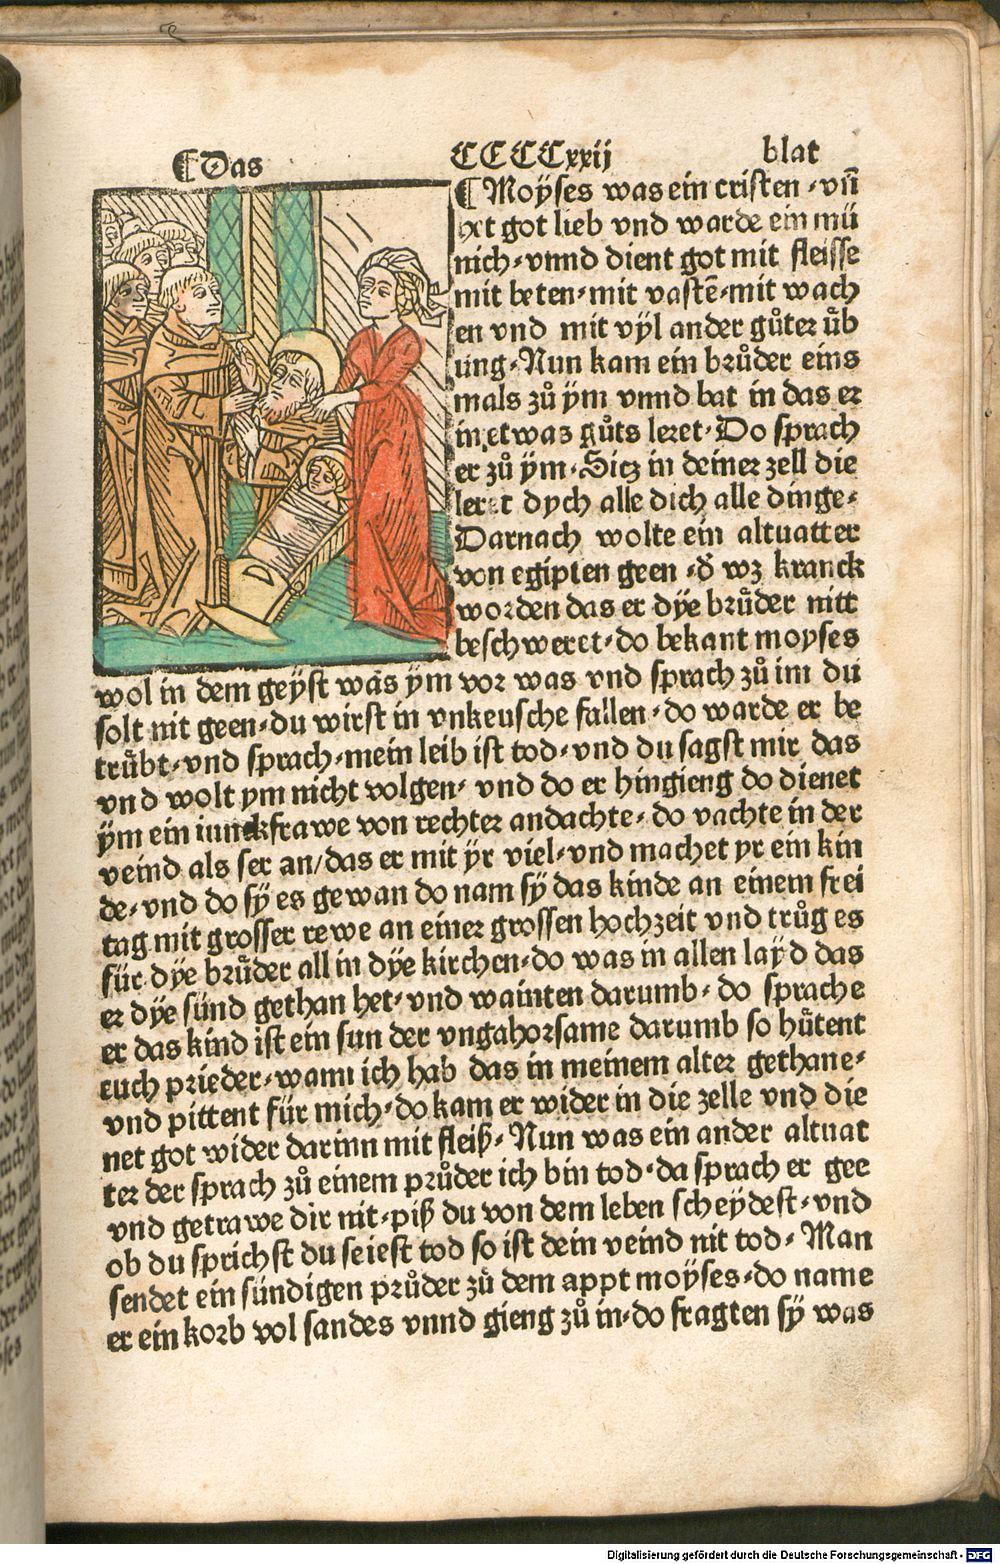 ⸿Das CCCCxxij blat
⸿Moÿses was ein cristen ⸗ vñ
het got lieb vnd warde ein mü
nich⸗vnnd dient got mit fleisse
mit beten⸗mit vastē⸗mit wach
en vnd mit vÿl ander gůter ůb
ung⸗Nun kam ein brůder eins
mals zů ÿm vnnd bat in das er
in etwas gůts leret⸗Do sprach
er zů ÿm⸗Sitz in deiner zell die
leret dych alle dich alle dinge⸗
Darnach wolte ein altuatter
von egipten geen ⸗d̕ wz kranck
worden das er dÿe brůder nitt
beschweret⸗do bekant moyses
wol in dem geÿst was ÿm vor was vnd sprach zů im du
solt nit geen⸗du wirst in vnkeusche fallen⸗do warde er be
trůbt⸗vnd sprach⸗mein leib ist tod⸗vnd du sagst mir das
vnd wolt ym nicht volgen⸗ vnd do er hingieng do dienet
ÿm ein iunckfrawe von rechter andachte⸗do vachte in der
veind als ser an/das er mit ÿr viel⸗vnd machet yr ein kin
de⸗vnd do sÿ es gewan do nam sÿ das kinde an einem frei
tag mit grosser rewe an einer grossen hochzeit vnd trůg es
für dÿe brůder all in dÿe kirchen⸗do was in allen laÿd das
er dÿe sünd gethan het⸗vnd wainten darumb⸗do sprache
er das kind ist ein sun der vngahorsame darumb so hůtent
euch prieder⸗wann ich hab das in meinem alter gethane⸗
vnd pittent für mich⸗do kam er wider in die zelle vnd die
net got wider darinn mit fleiß⸗Nun was ein ander altuat
ter der sprach zů einem průder ich bin tod⸗da sprach er gee
vnd getrawe dir nit⸗piß du von dem leben scheÿdest⸗vnd
ob du sprichst du seiest tod so ist dein veind nit tod⸗Man
sendet ein sündigen průder zů dem appt moÿses⸗do name
er ein korb vol sandes vnnd gieng zů in⸗do fragten sÿ was
Digitalisierung gefördert durch die Deutsche Forschungsgemeinschaft - DFG